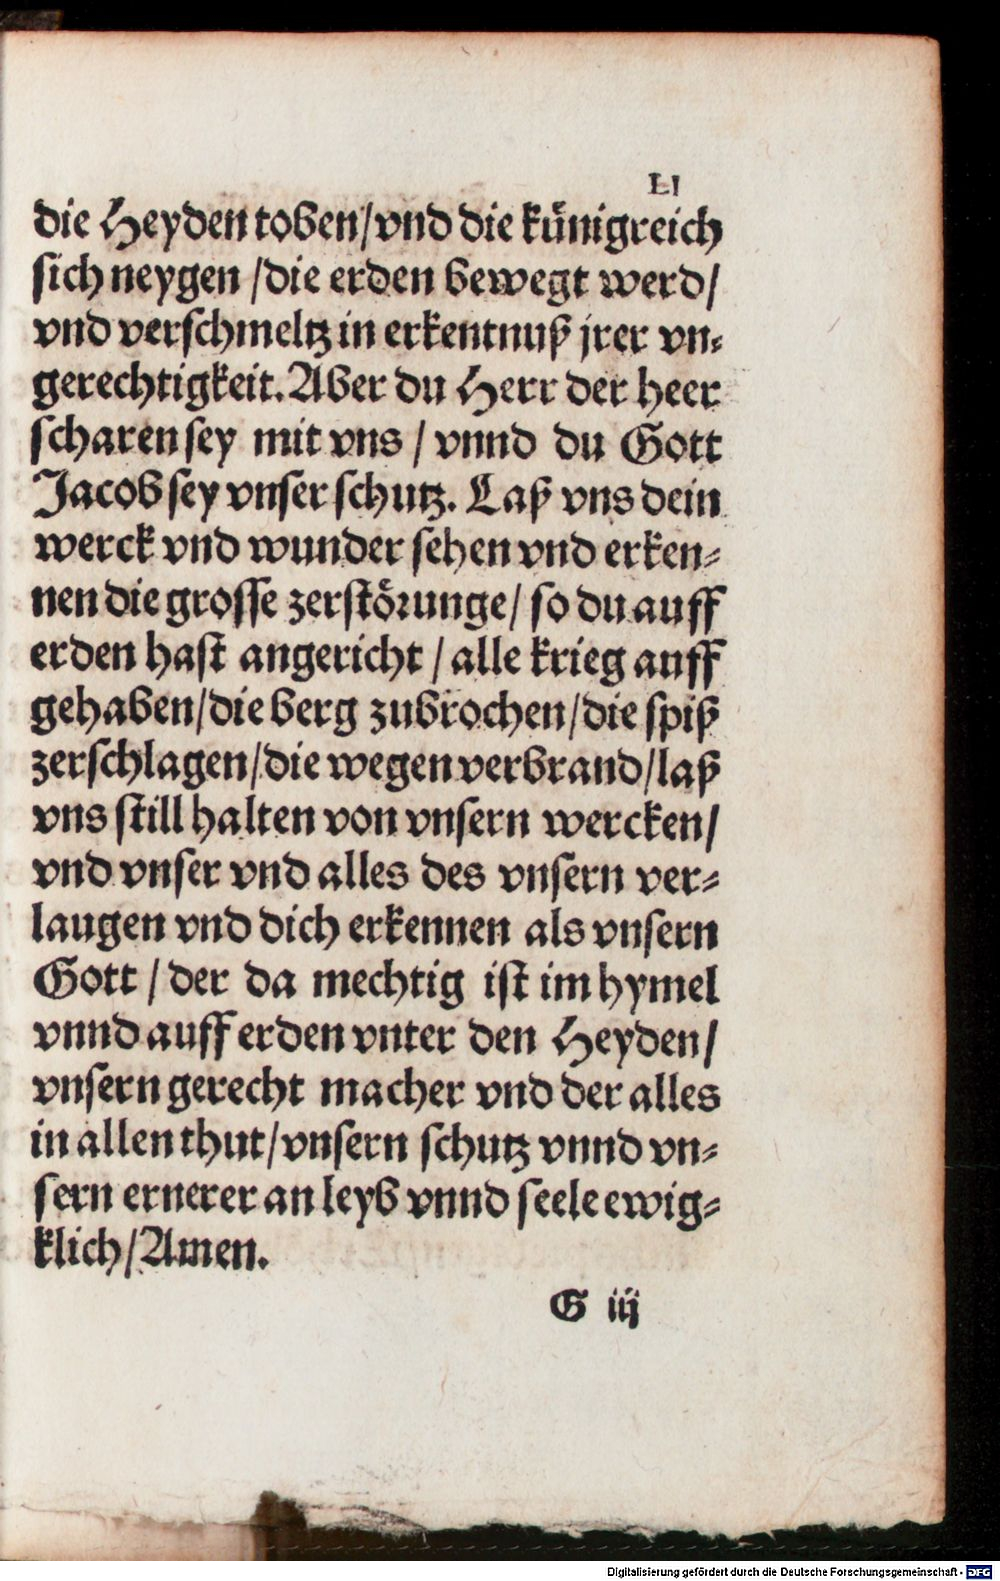 LI
die Heyden toben/vnd die künigreich
sich neygen /die erden bewegt werd/
vnd verschmeltz in erkentnuß jrer vn-
gerechtigkeit. Aber du Herr der heer
scharen sey mit vns / vnnd du Gott
Jacob sey vnser schutz. Laß vns dein
werck vnd wunder sehen vnd erken-
nen die grosse zerstörunge/ so du auff
erden hast angericht / alle krieg auff
gehaben/die berg zubrochen/die spiß
zerschlagen/die wegen verbrand/laß
vns still halten von vnsern wercken/
vnd vnser vnd alles des vnsern ver-
laugen vnd dich erkennen als vnsern
Gott / der da mechtig ist im hymel
vnnd auff erden vnter den Heyden/
vnsern gerecht macher vnd der alles
in allen thut/vnsern schutz vnnd vn-
sern ernerer an leyb vnnd seele ewig-
klich/Amen.
G iij
Digitalisierung gefördert durch die Deutsche Forschungsgemeinschaft - DFG